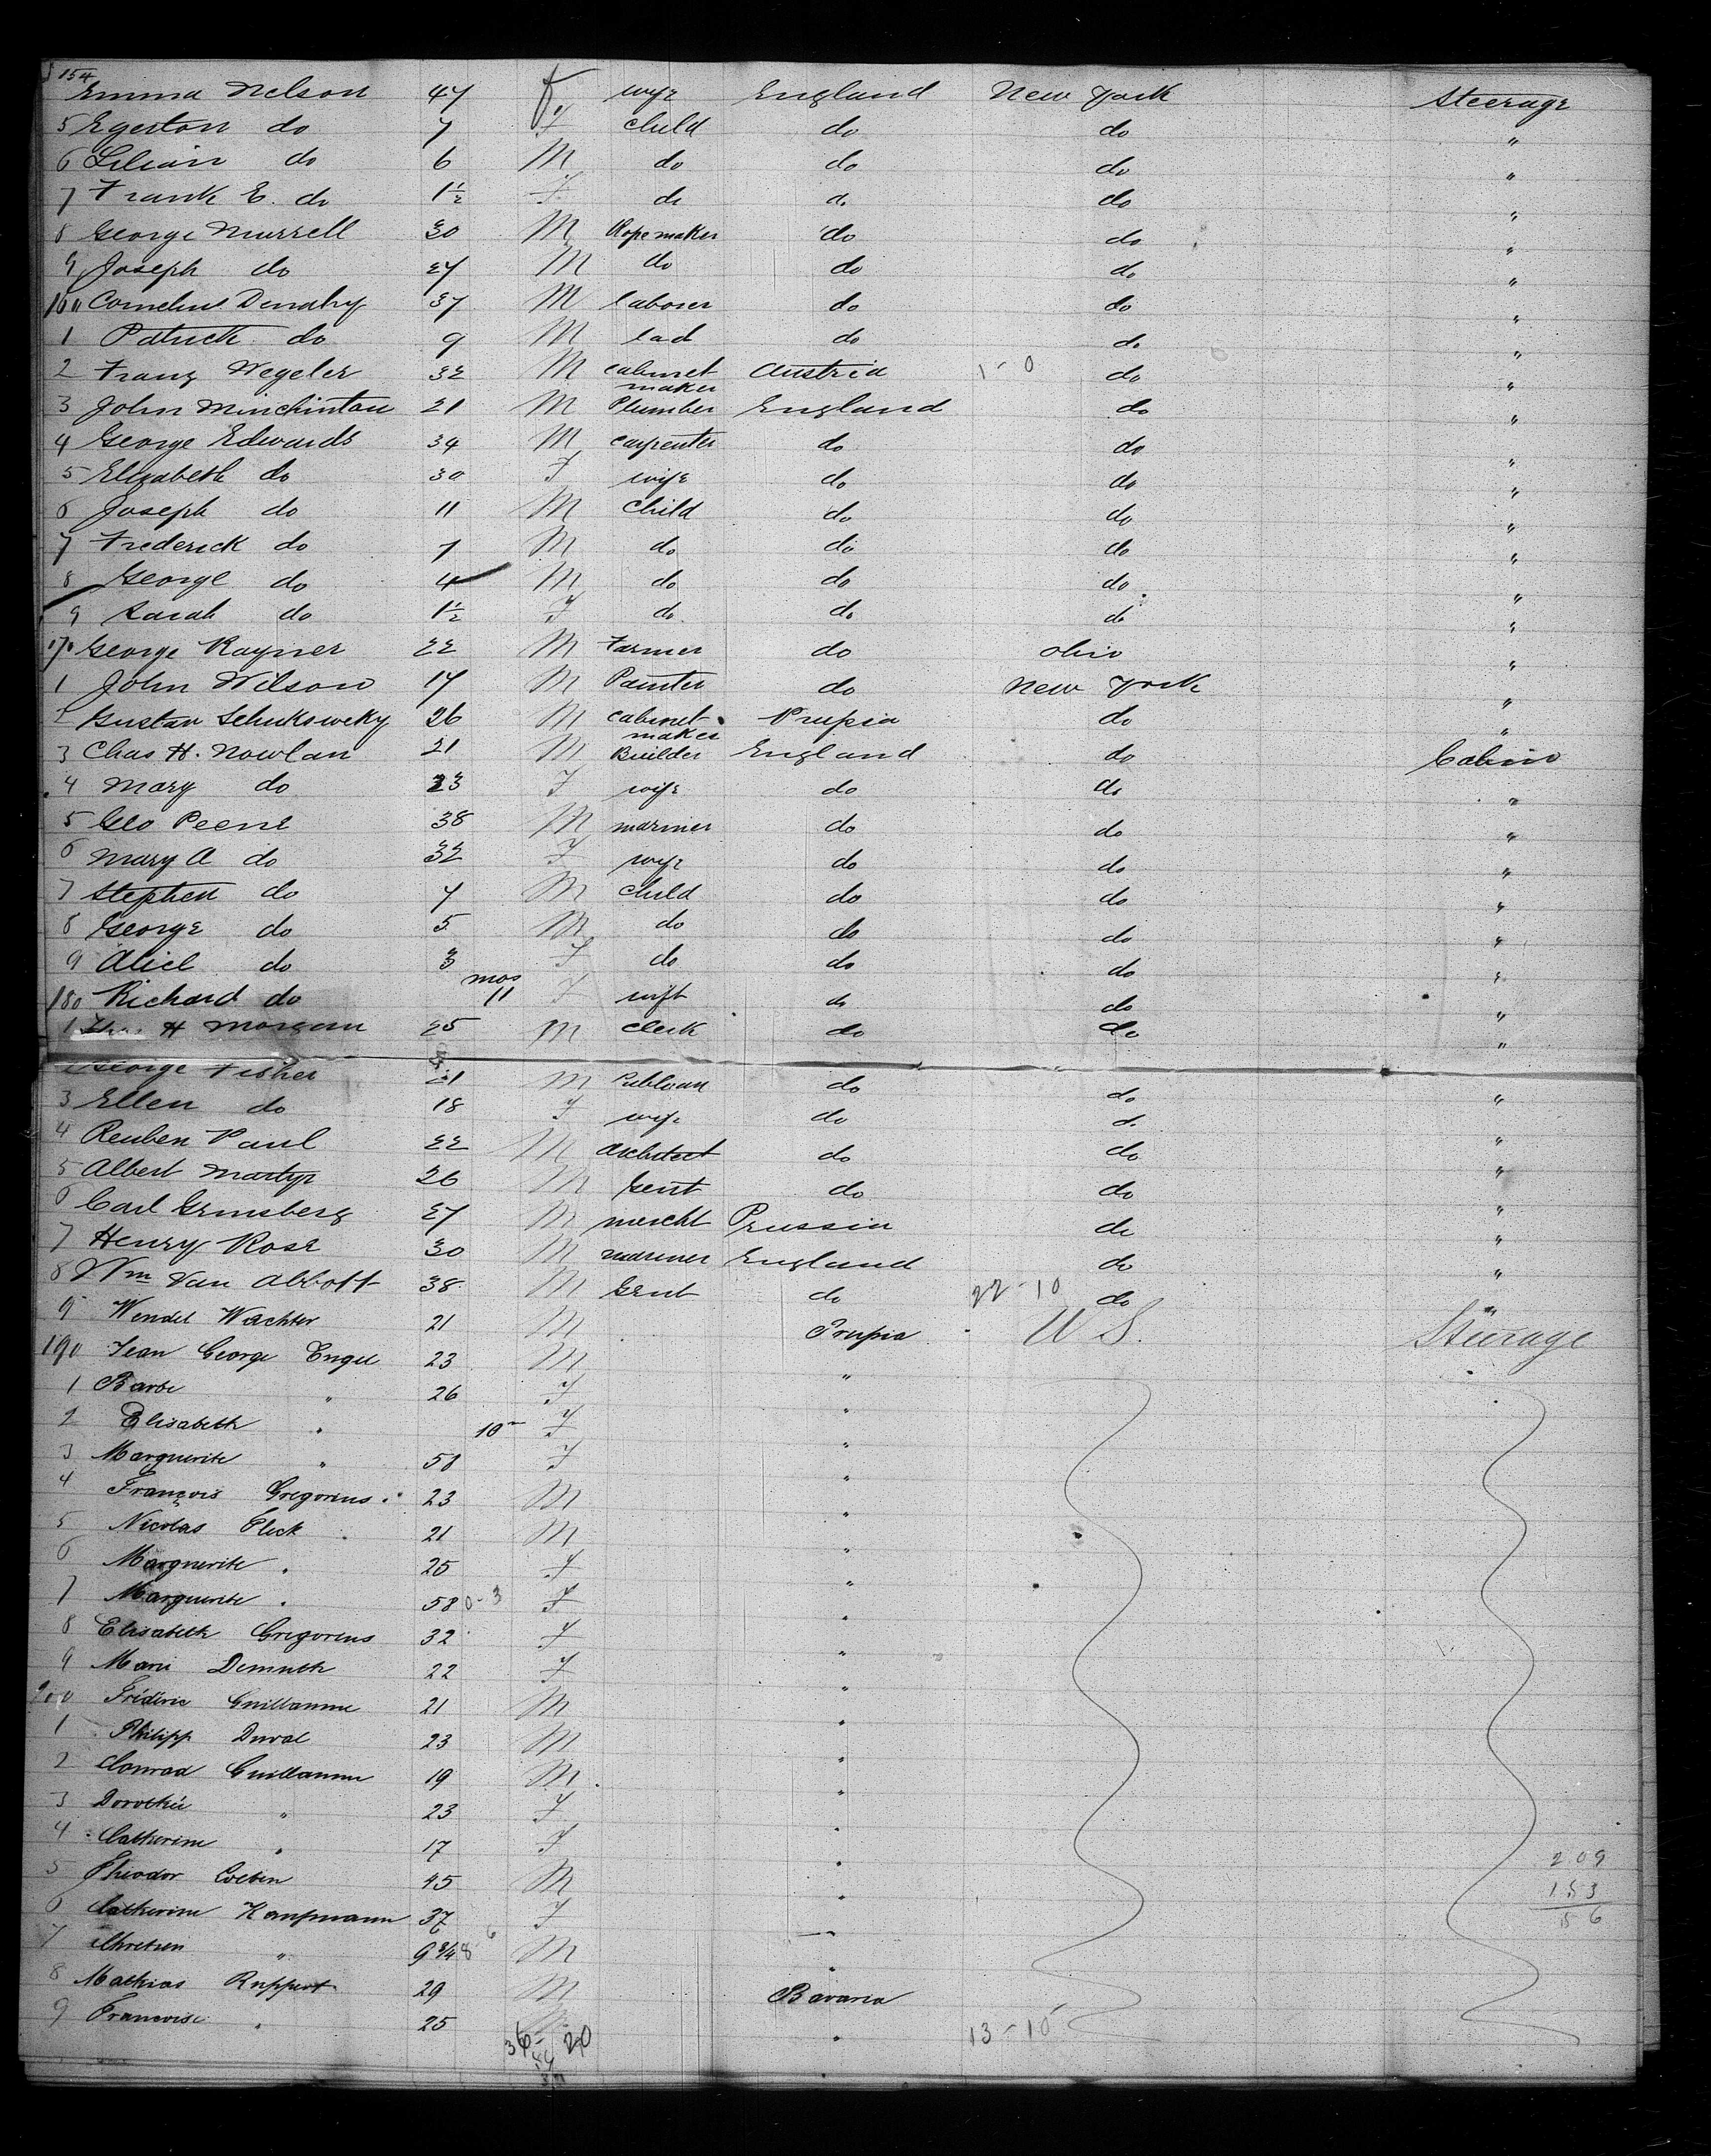 154 Emma Nelson 47 F wife England New York Steerage
5 Egerton do 7 F child do do "
6 Lilian do 6 M do do do "
7 Frank E. do 1½ F do do do "
8 George Murrell 30 M Ropemaker do do "
9 Joseph do 27 M do do do "
160 Cornelius 37 M laborer do do "
1 Patrick do 9 M lad do do "
2 Franz Wegeler 32 M cabinet maker Austria 1-0 do "
3 John Minchinton 21 M Plumber England do "
4 George Edwards 34 M carpenter do do "
5 Elizabeth do 30 F wife do do "
6 Joseph do 11 M Child do do "
7 Frederick do 7 M do do do "
8 George do 4 M do do do "
9 Sarah do 1½ F do do do "
170 George Rayner 22 M Farmer do Ohio "
1 John Wilson 17 M Painter do New York "
2 Gustav 26 M cabinet maker Prussia do "
3 Chas H. Nowlan 21 M Builder England do Cabin
4 Mary do 23 F wife do do "
5 Geo Peene 38 M mariner do do "
6 Mary A do 32 F wife do do "
7 Stephen do 7 M child do do "
8 George do 5 M do do do "
9 Alice do 3 F do do do "
180 Richard do mos 11 F inft do do "
1 H Morgan 25 M Clerk do do "
2 George Fisher 21 M Publican do do "
3 Ellen do 18 F wife do do "
4 Reuben Paul 22 M Architect do do "
5 Albert Martyr 26 M Gent do do "
6 Carl Grinsberg 27 M mercht Prussia do "
7 Henry Rose 30 M mariner England do "
8 Wm Van Abbott 38 M Gent do 22-10 do "
9 Wendel Wachter 21 M Prussia U S. Steerage
190 Jean George Engel 23 M "
1 Barbe " 26 F "
2 Elisabeth " 10m F "
3 Marguerite " 58 F "
4 François Gregorius 23 M "
5 Nicolas Fleck 21 M "
6 Marguerite " 25 F "
7 Marguerite " 58 0-3 F "
8 Elisabeth Gregorius 32 F "
9 Marie Demuth 22 F "
200 Frédéric Guillaume 21 M "
1 Philipp Duval 23 M "
2 Conrad Guillaume 19 M "
3 Dorothée " 23 F "
4 Catherine " 17 F "
5 Theodor 45 M " 209
6 Catherine Kaufmann 37 F " 153
7 Chretien " 9 3/4 M " 56
8 Mathias Ruppert 29 M Bavaria
9 Francoise " 25 " 13-10
36- 20